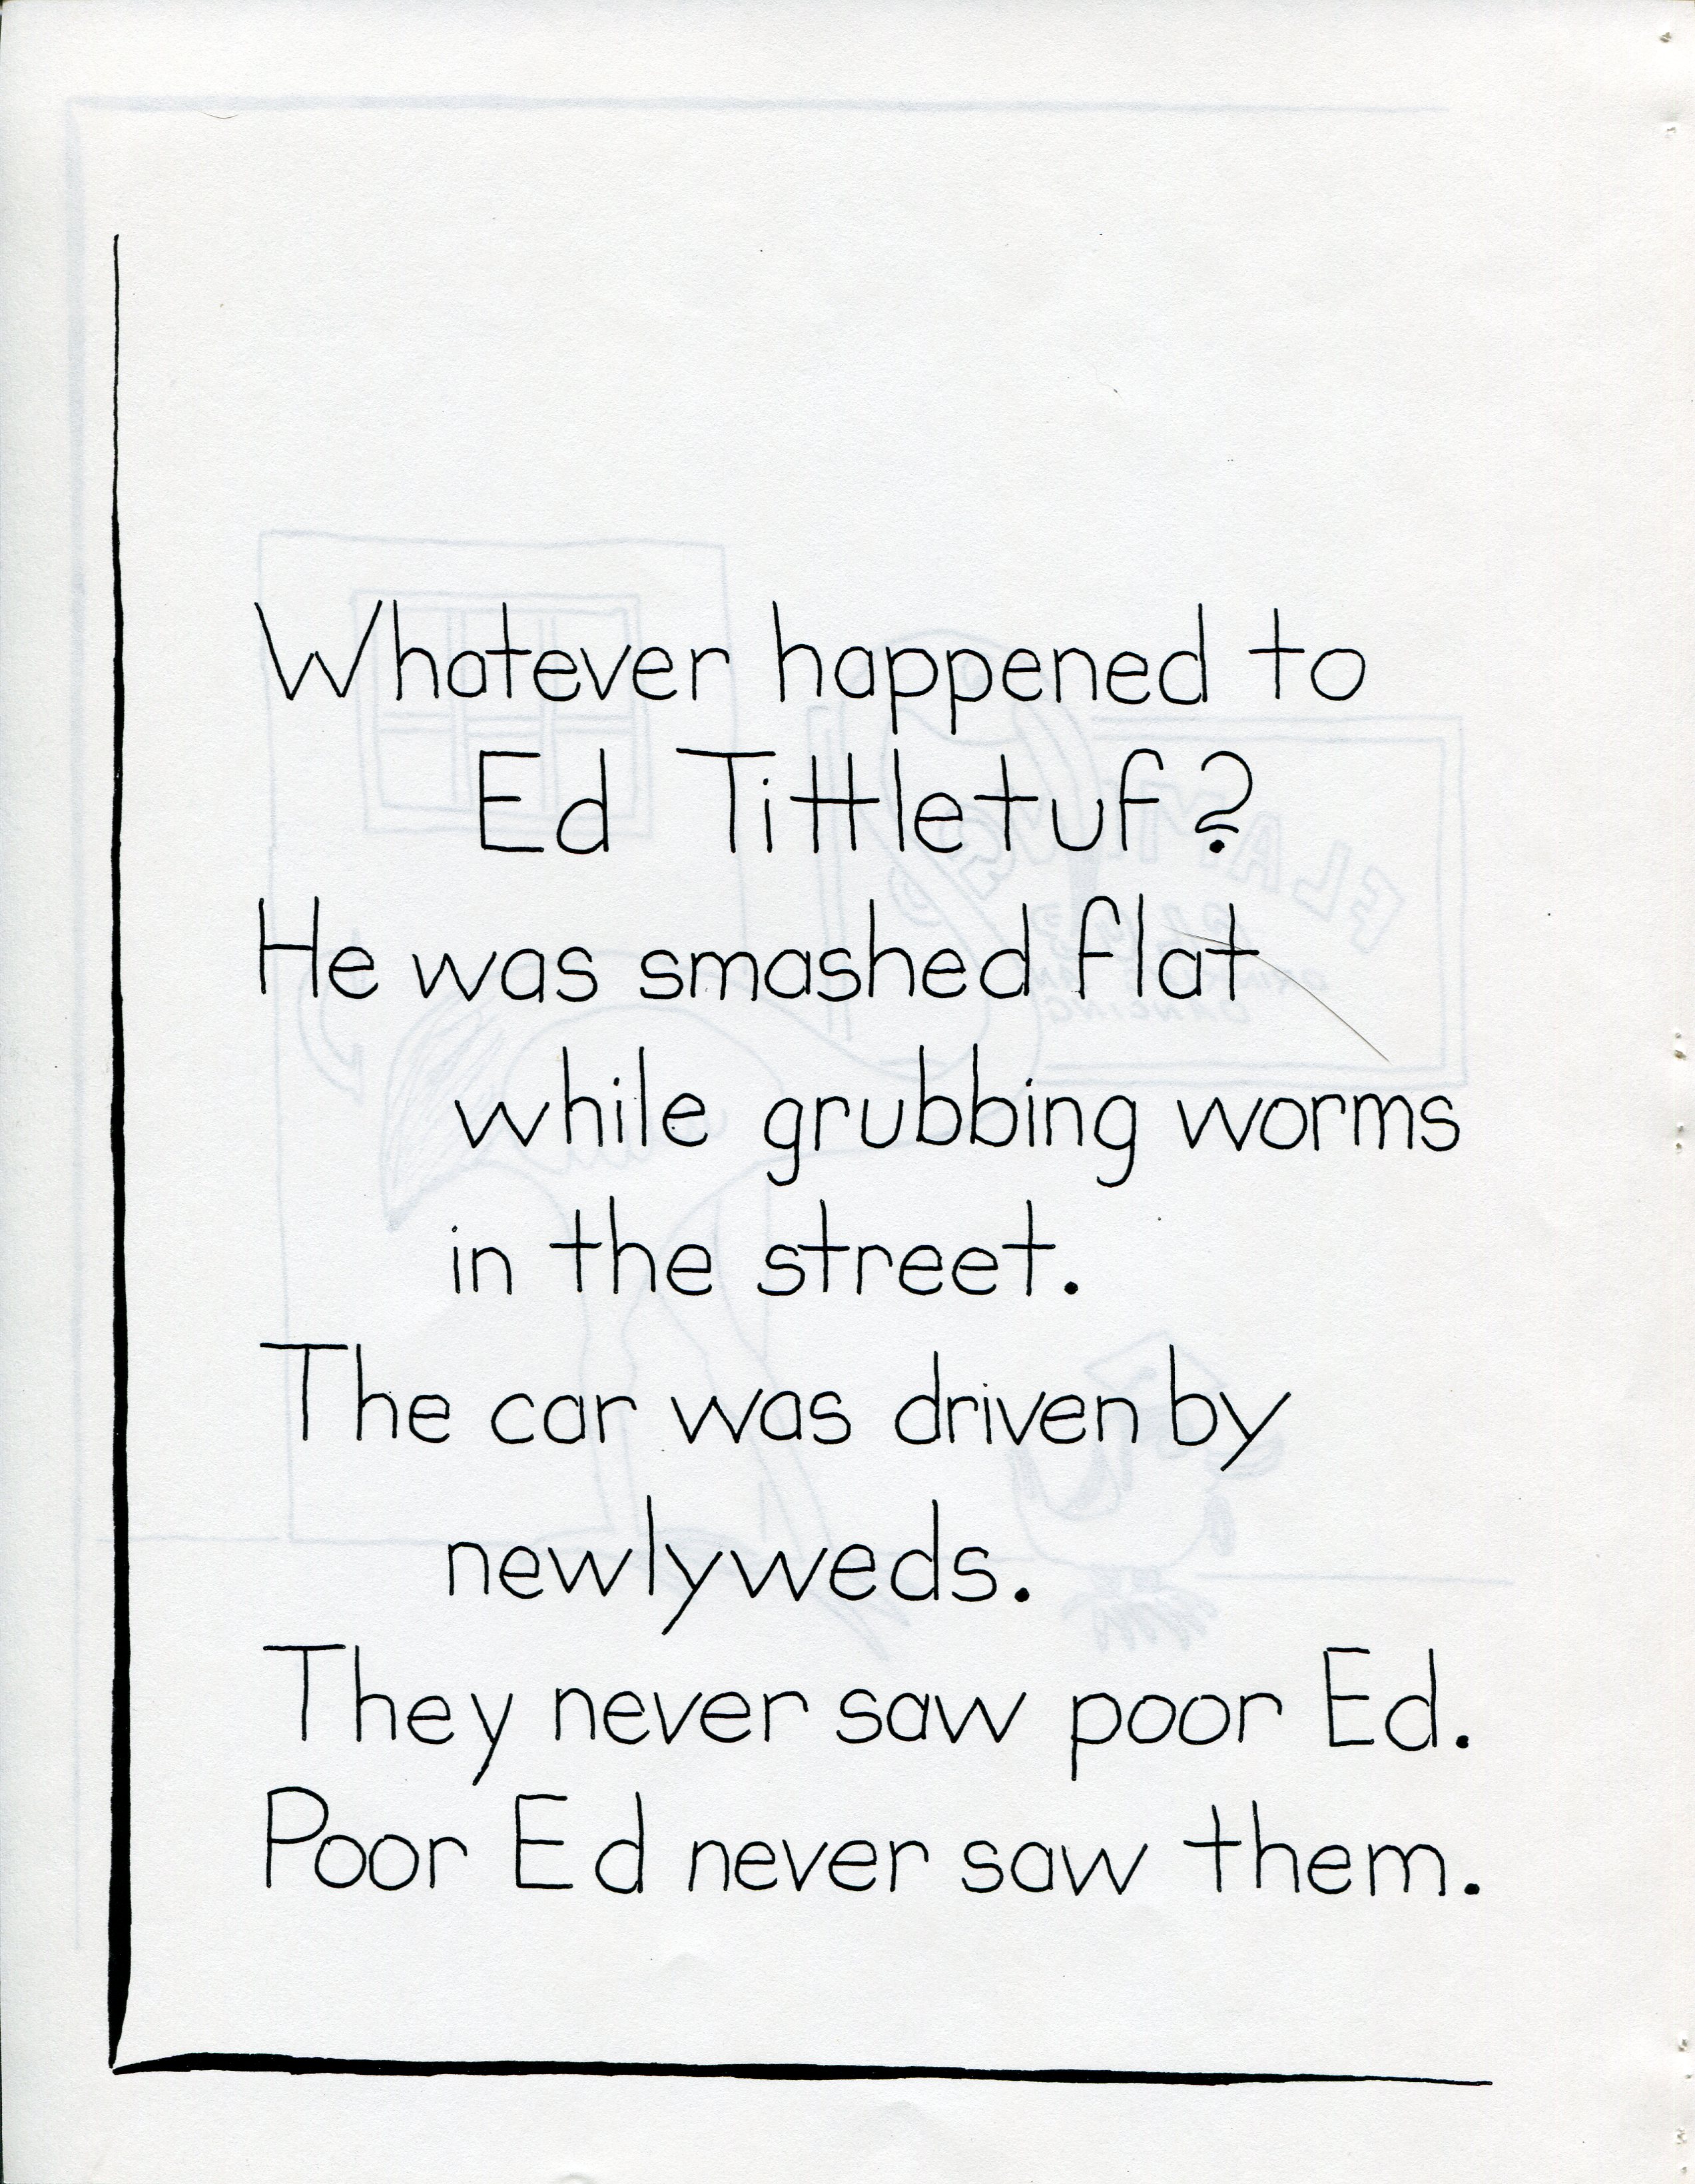 Whatever happened to
Ed Tittletuf?
He was smashed flat
while grubbing worms
in the street.
The car was driven by
newlyweds.
They never saw poor Ed.
Poor Ed never saw them.